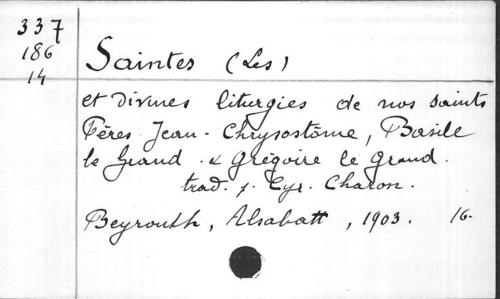 337
186
14
Saintes (Les)
et divines liturgies de nos saints
Pères Jean-Chrysostôme, Basile
le Grand & Grégoire le Grand.
trad. p. Cyr. Charon.
Beyrouth, Alsabatt, 1903. 16-